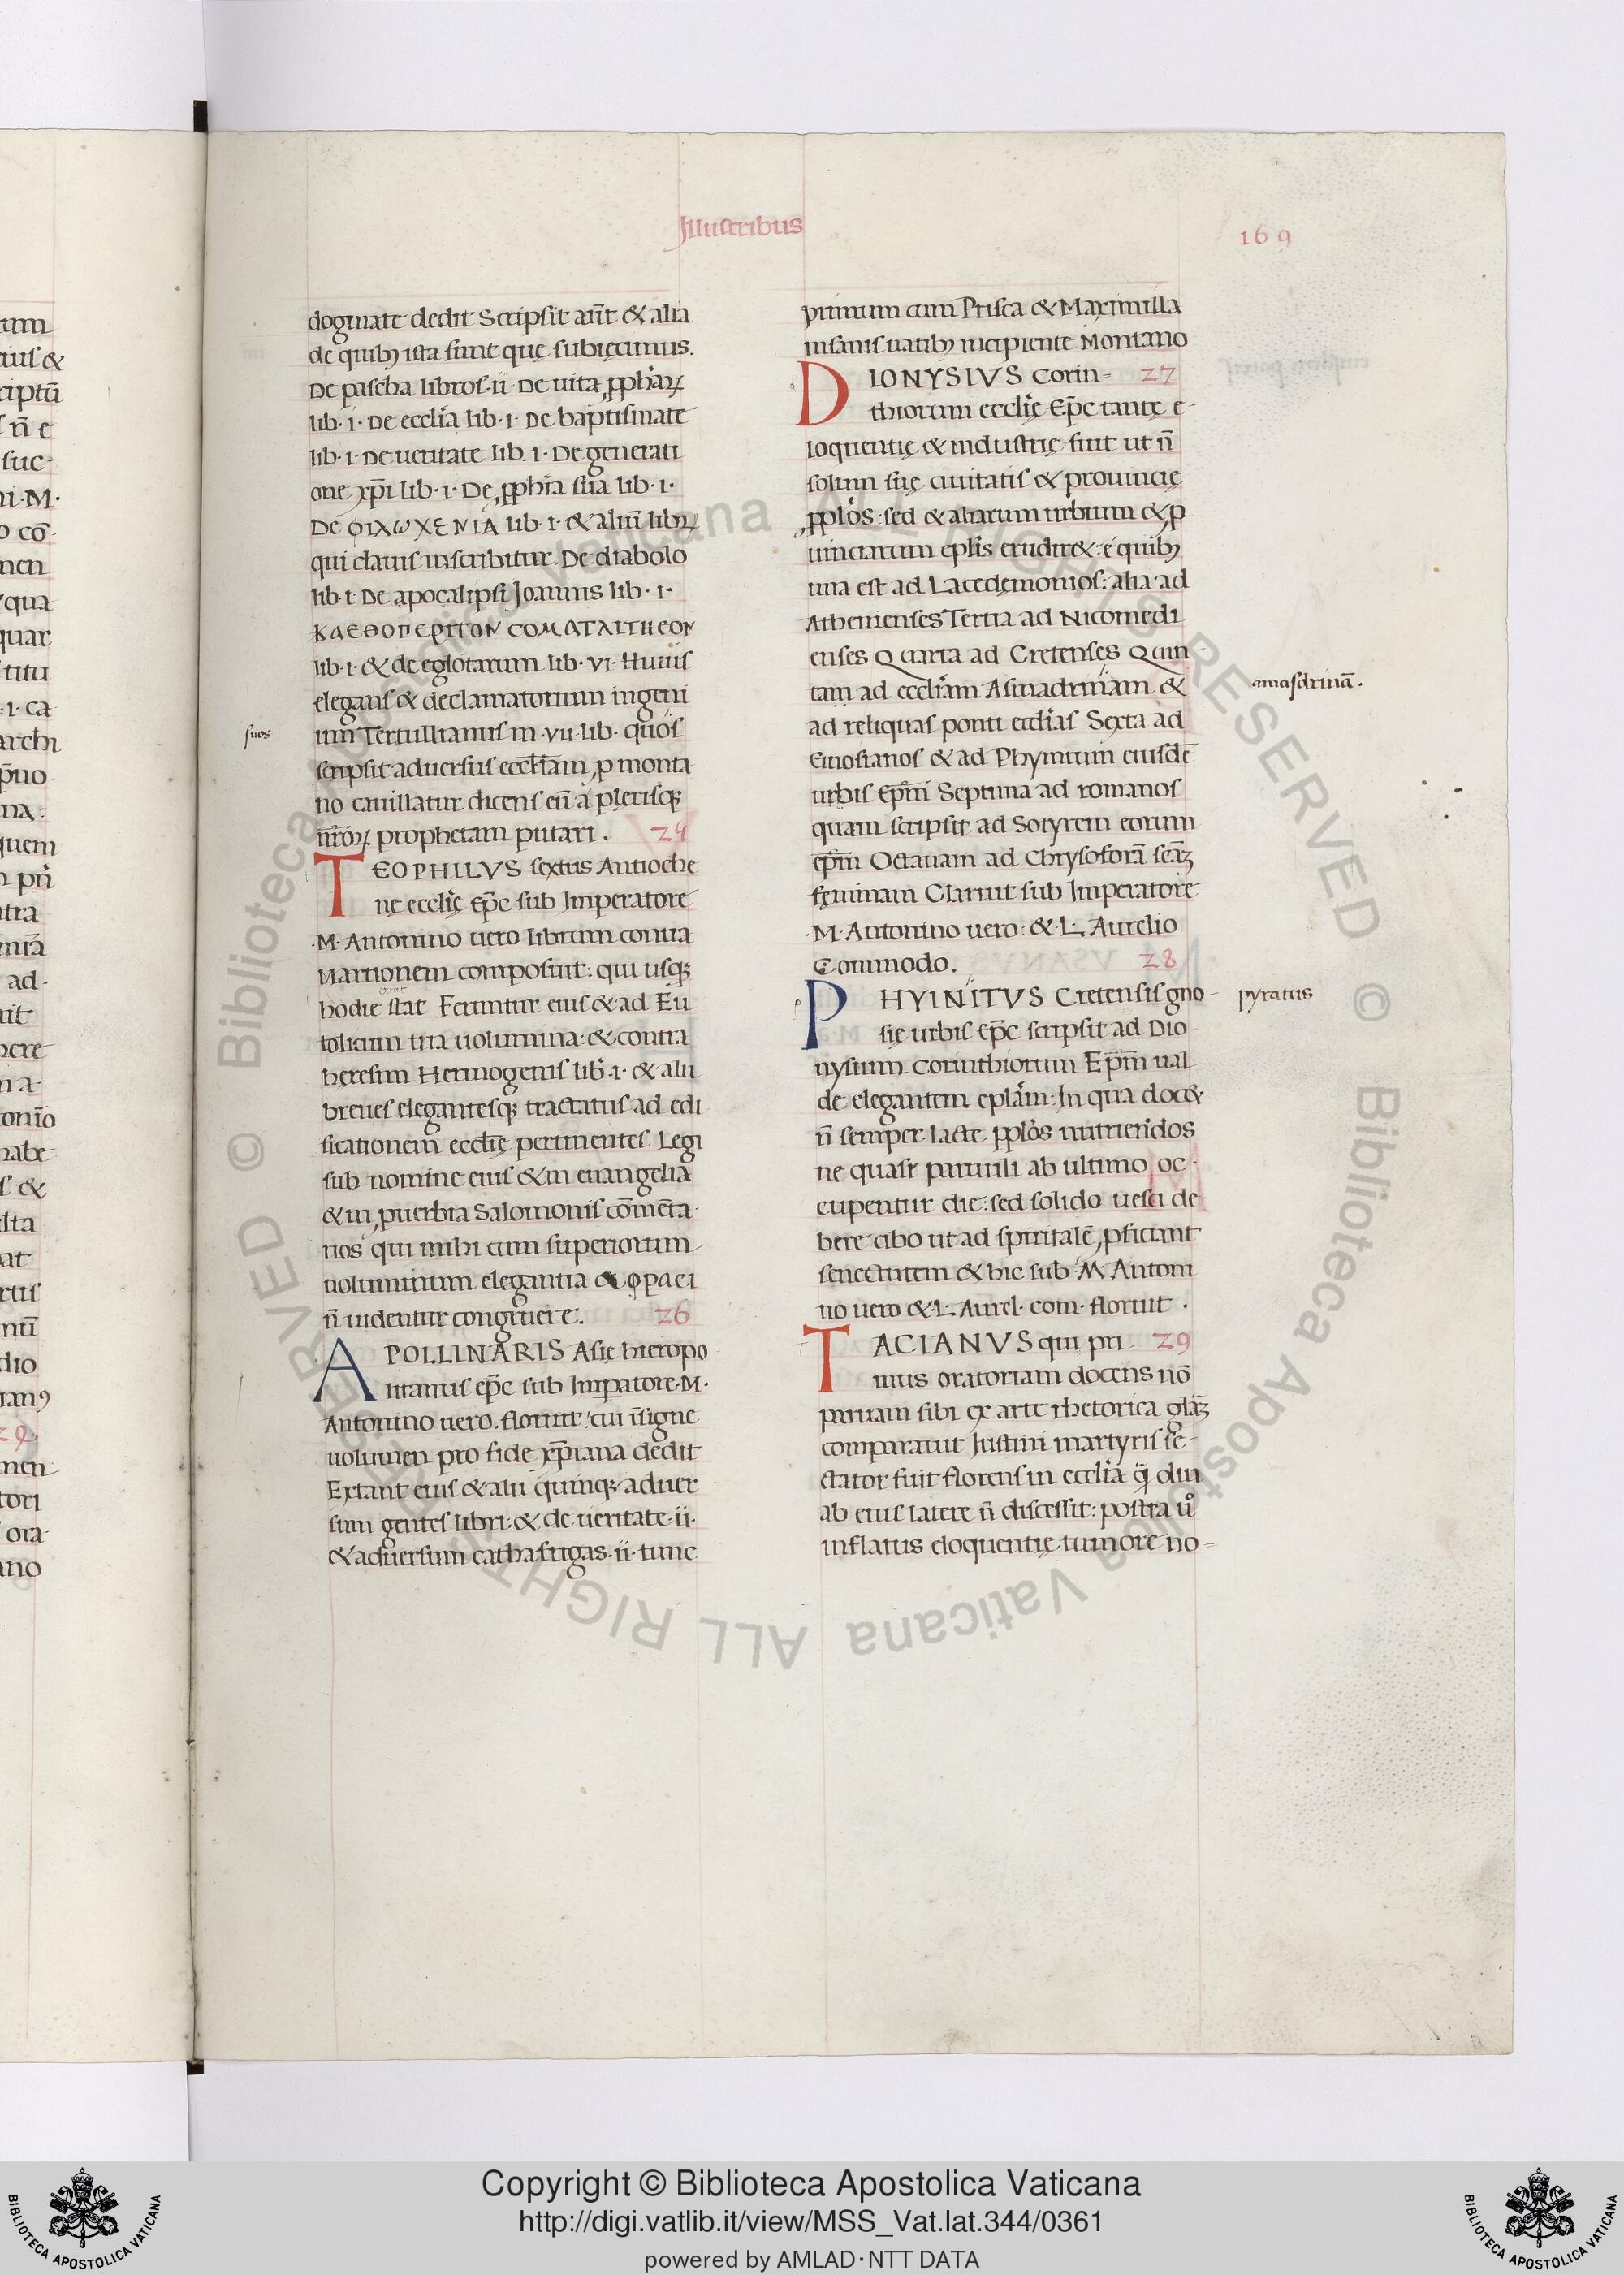 Illustribus
169
dogmate dedit Scripsit aūt & alia
de quibꝫ ista sunt quę subięcimus.
De pascha libros·ii·De uita ꝓpħaꝝ
lib·i·De ecclīa lib·i·De baptismate
lib·i·De ueritate lib.i·De generati
one xp̄i lib·i·De ꝓpħia sua lib·i·
De ΦΙΛωΧΕΝΙΑ lib·i·& aliū libꝝ
qui clauis inscribitur De diabolo
lib·i·De apocalipsi Joannis lib·i·
lib·i·& de eglotarum lib·vi·Huius
elegans & declamatorium ingeni
um Tertullianus in·vii·lib·quos
suos
scripsit aduersus eccl̄iam ꝓ monta
no cauillatur dicens eū a plerisqꝫ
nr̄oꝝ prophetam putari. 24
TEOPHILVS sextus Antioche
nę ecclīę Ep̄c sub Imperatore
·M·Antonino uero librum contra
Martionem composuit: qui usqꝫ
hodie stat Feruntur eius & ad Eu
tolicum tria uolumina:& contra
hęresim Hermogenis lib·i·& alii
breues elegantesqꝫ tractatus ad edi
ficationem ecclīę pertinentes Legi
sub nomine eius & in euangelia
& in ꝓuerbia Salomonis cōmēta
rios qui mihi cum superiorum
uoluminum elegantia & φραει
n̄ uidentur congruere. 26
APOLLINARIS Asię hieropo
litanus ep̄c sub Imꝑatore·M·
Antonino uero.floruit:cui īsigne
uolumen pro fide xp̄iana dedit
Extant eius & alii quinqꝫ aduer
sum gentes libri:& de ueritate·ii·
& aduersum cathafrigas·ii·tunc
primum cum Prisca & Maximilla
insanis uatibꝫ incipiente Montano
DIONYSIVS Corin= 27
thiorum ecclīę Ep̄c tantę e-
loquentię & industrię fuit ut n̄
solum suę ciuitatis & prouincię
ꝓpl̄os:sed & aliarum urbium & ꝓ
uinciarum epl̄is erudir&:e quibꝫ
una est ad Lacedęmonios:alia ad
Athenienses Tertia ad Nicomedi
enses Quarta ad Cretenses Quin
tam ad eccl̄iam Asinadrinam &
amasdrinā.
ad reliquas ponti eccl̄ias Sexta ad
Gnosianos & ad Phynitum eiusdē
urbis Ep̄m Septima ad romanos
quam scripsit ad Sotyrem eorum
ep̄m Octauam ad Chrysoforā scāꝫ
fęminam Claruit sub Imperatore
·M·Antonino uero:&·L·Aurelio
Commodo. 28
PHYINITVS Cretensis gno-
pyratus
się urbis Ep̄c scripsit ad Dio-
nysium Corinthiorum Ep̄m ual
de elegantem epl̄am:In qua doc&
n̄ semper lacte ppl̄os nutriendos
ne quasi paruuli ab ultimo oc-
cupentur die:sed solido uesci de-
bere cibo ut ad spiritalē ꝓficiant
senectutem & hic sub M Antoni
no uero &·L·Aurel·com·floruit·
TACIANVS qui pri- 29
mus oratoriam docens nō
paruam sibi ex arte rhetorica gl̄aꝫ
comparauit Justini martyris se-
ctator fuit florens in eccl̄ia qͣ̄diu
ab eius latere n̄ discessit:postea uͦ
inflatus eloquentię tumore no=
Copyright © Biblioteca Apostolica Vaticana
http://digi.vatlib.it/view/MSS_Vat.lat.344/0361
powered by AMLAD·NTT DATA
BIBLIOTECA APOSTOLICA VATICANA
BIBLIOTECA APOSTOLICA VATICANA
© Biblioteca Apostolica Vaticana ALL RIGHTS RESERVED © Biblioteca Apostolica Vaticana ALL RIGHTS RESERVED